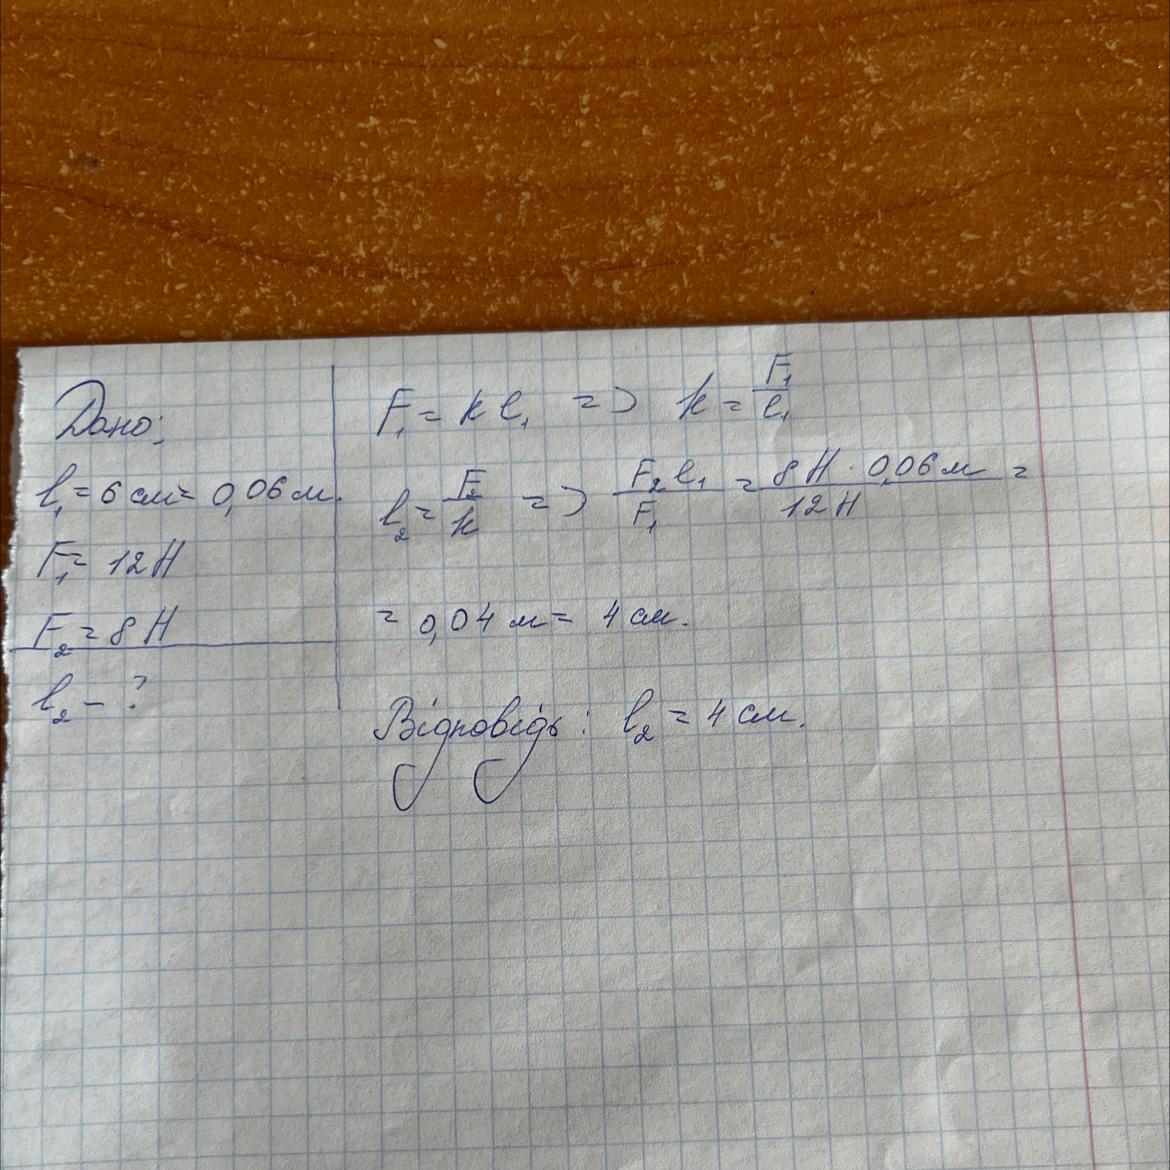 Дано:
l₁ = 6 см = 0,06 м.
F₁ = 12 Н
F₂ = 8 Н
l₂ - ?
F₁ = k l₁ => k = F₁/l₁
l₂ = F₂/k => F₂ l₁/F₁ = 8 Н · 0,06 м/12 Н =
= 0,04 м = 4 см.
Відповідь: l₂ = 4 см.